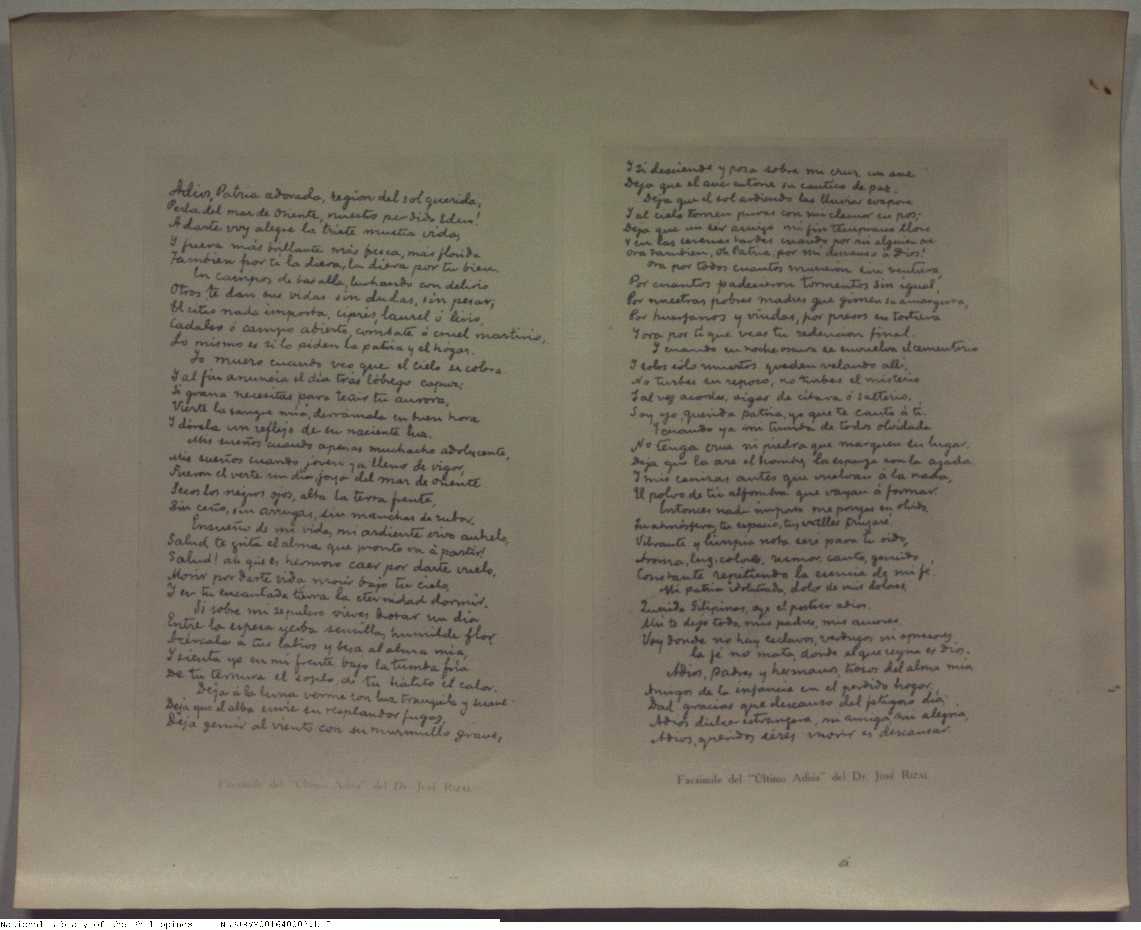 Adios, Patria adorada, region del sol querida,
Perla del mar de Oriente, nuestro perdido Eden!
A darte voy alegre la triste mustia vida,
Y fuera más brillante más fresca, más florida
Tambien por ti la diera, la diera por tu bien.
En campos de batalla, luchando con delirio
Otros te dan sus vidas sin dudas, sin pesar;
El sitio nada importa, ciprés, laurel ó lirio,
Cadalso ó campo abierto, combate ó cruel martirio,
Lo mismo es si lo piden la patria y el hogar.
Yo muero cuando veo que el cielo se colora
Y al fin anuncia el dia trás lóbrego capuz;
Si grana necesitas para teñir tu aurora,
Vierte la sangre mia, derrámala en buen hora
Y dórela un reflejo de su naciente luz.
Mis sueños cuando apenas muchacho adolescente,
Mis sueños cuando joven ya lleno de vigor,
Fueron el verte un dia, joya del mar de oriente
Secos los negros ojos, alta la tersa frente,
Sin ceño, sin arrugas, sin manchas de rubor.
Ensueño de mi vida, mi ardiente vivo anhelo,
Salud te grita el alma que pronto va á partir!
Salud! ah que es hermoso caer por darte vuelo,
Morir por darte vida, morir bajo tu cielo,
Y en tu encantada tierra la eternidad dormir.
Si sobre mi sepulcro vieres brotar un dia
Entre la espesa yerba sencilla, humilde flor,
Acércala a tus labios y besa al alma mia,
Y sienta yo en mi frente bajo la tumba fria
De tu ternura el soplo, de tu hálito el calor.
Deja á la luna verme con luz tranquila y suave
Deja que el alba envie su resplandor fugaz,
Deja gemir al viento con su murmullo grave,
Facsimile del "Último Adiós" del Dr. José Rizal
Y si desciende y posa sobre mi cruz un ave
Deja que el ave entone su cantico de paz.
Deja que el sol ardiendo las lluvias evapore
Y al cielo tornen puras con mi clamor en pos;
Deja que un ser amigo mi fin temprano llore
Y en las serenas tardes cuando por mi alguien ore
Ora tambien, Oh Patria, por mi descanso á Dios!
Ora por todos cuantos murieron sin ventura,
Por cuantos padecieron tormentos sin igual,
Por nuestras pobres madres que gimen su amargura,
Por huerfanos y viudas, por presos en tortura
Y ora por ti que veas tu redencion final.
Y cuando en noche oscura se envuelva el cementerio
Y solos sólo muertos queden velando allí,
No turbes su reposo, no turbes el misterio
Tal vez acordes oigas de citara ó salterio,
Soy yo, querida Patria, yo que te canto á ti.
Y cuando ya mi tumba de todos olvidada
No tenga cruz ni piedra que marquen su lugar,
Deja que la are el hombre, la esparza con la azada
Y mis cenizas antes que vuelvan á la nada,
El polvo de tu alfombra que vayan á formar.
Entonces nada importa me pongas en olvido,
Tu atmósfera, tu espacio, tus valles cruzaré
Vibrante y limpia nota seré para tu oido,
Aroma, luz, colores, rumor, canto, gemido
Constante repitiendo la esencia de mi fé.
Mi patria idolatrada, dolor de mis dolores,
Querida Filipinas, oye el postrer adios.
Ahi te dejo todo, mis padres, mis amores.
Voy donde no hay esclavos, verdugos ni opresores,
la fé no mata, donde el que reyna es Dios.
Adios, padres y hermanos, trozos del alma mia
Amigos de la infancia en el perdido hogar,
Dad gracias que descanso del fatigoso dia;
Adios dulce estrangera, mi amiga, mi alegria,
Adios, queridos séres morir es descansar.
Facsimile del "Último Adiós" del Dr. José Rizal